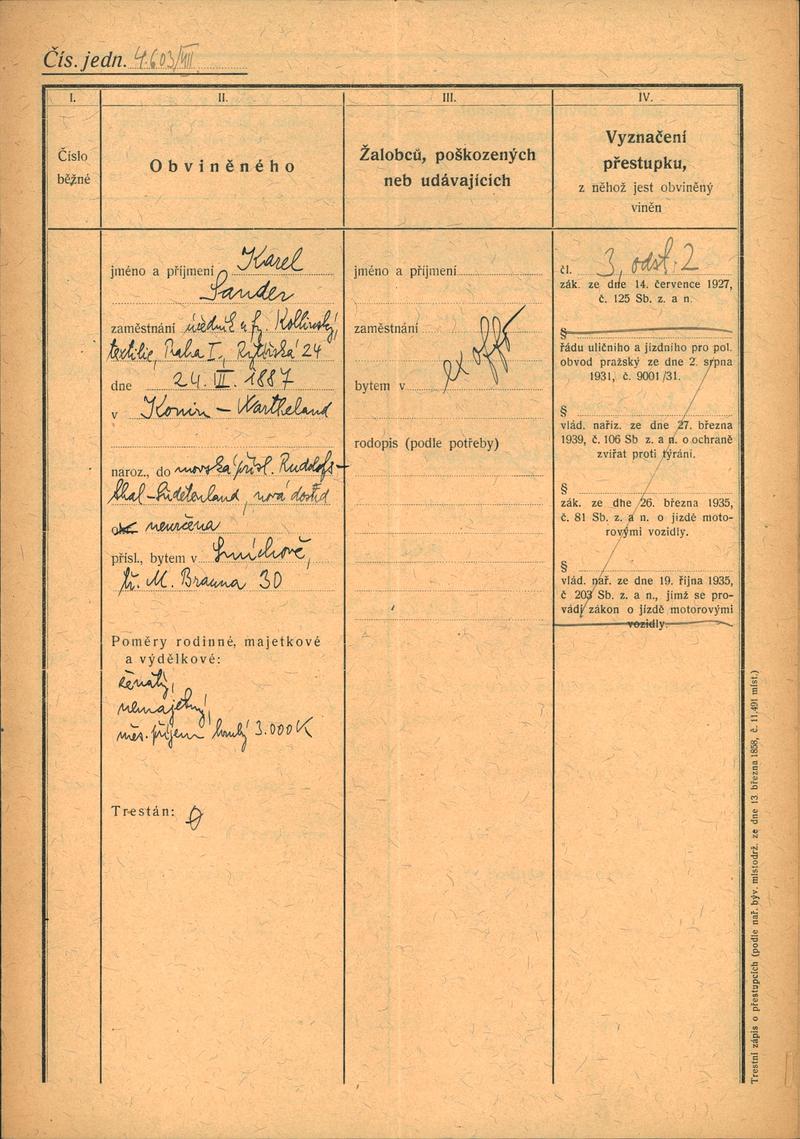 Čís. jedn. 4.603/VIII
I.
II.
III.
IV.
Číslo
běžné
Obviněného
Žalobců, poškozených
neb udávajících
Vyznačení
přestupku,
z něhož jest obviněný
viněn
jméno a příjmení Karel
Sander
zaměstnání úředník u fy. Kollinský,
textilie, Praha I., Rytířská 24
dne 24. VII. 1887
v Konin – Wartheland
naroz., do movská přísl. Rudolfs-
thal-Sudetenland, nová dosud
neurčena
přísl., bytem v Smíchově,
tř. M. Brauna 30
Poměry rodinné, majetkové
a výdělkové:
ženatý,
nemajetný,
měs. příjem hrubý 3.000 K
Trestán: 0
jméno a příjmení
zaměstnání
ex offo
bytem v
rodopis (podle potřeby)
čl. 3, odst. 2
zák. ze dne 14. července 1927,
č. 125 Sb. z. a n.
§
řádu uličního a jízdního pro pol.
obvod pražský ze dne 2. srpna
1931, č. 9001/31.
§
vlád. naříz. ze dne 27. března
1939, č. 106 Sb z. a n. o ochraně
zvířat proti týrání.
§
zák. ze dne 26. března 1935,
č. 81 Sb. z. a n. o jízdě moto-
rovými vozidly.
§
vlád. nař. ze dne 19. října 1935,
č 203 Sb. z. a n., jímž se pro-
vádí zákon o jízdě motorovými
vozidly.
Trestní zápis o přestupcích (podle nař. býv. místodrž. ze dne 13. března 1858, č. 11.491 míst.)